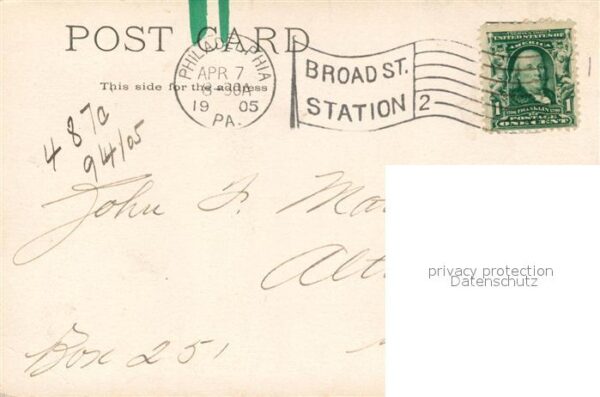 POST CARD
This side for the address
PHILADELPHIA
APR 7
8-30A
1905
PA.
BROAD ST.
STATION 2
UNITED STATES OF AMERICA
1 FRANKLIN 1
POSTAGE
ONE CENT
487a
94/05
John F. Ma
Alt
Box 251
privacy protection
Datenschutz